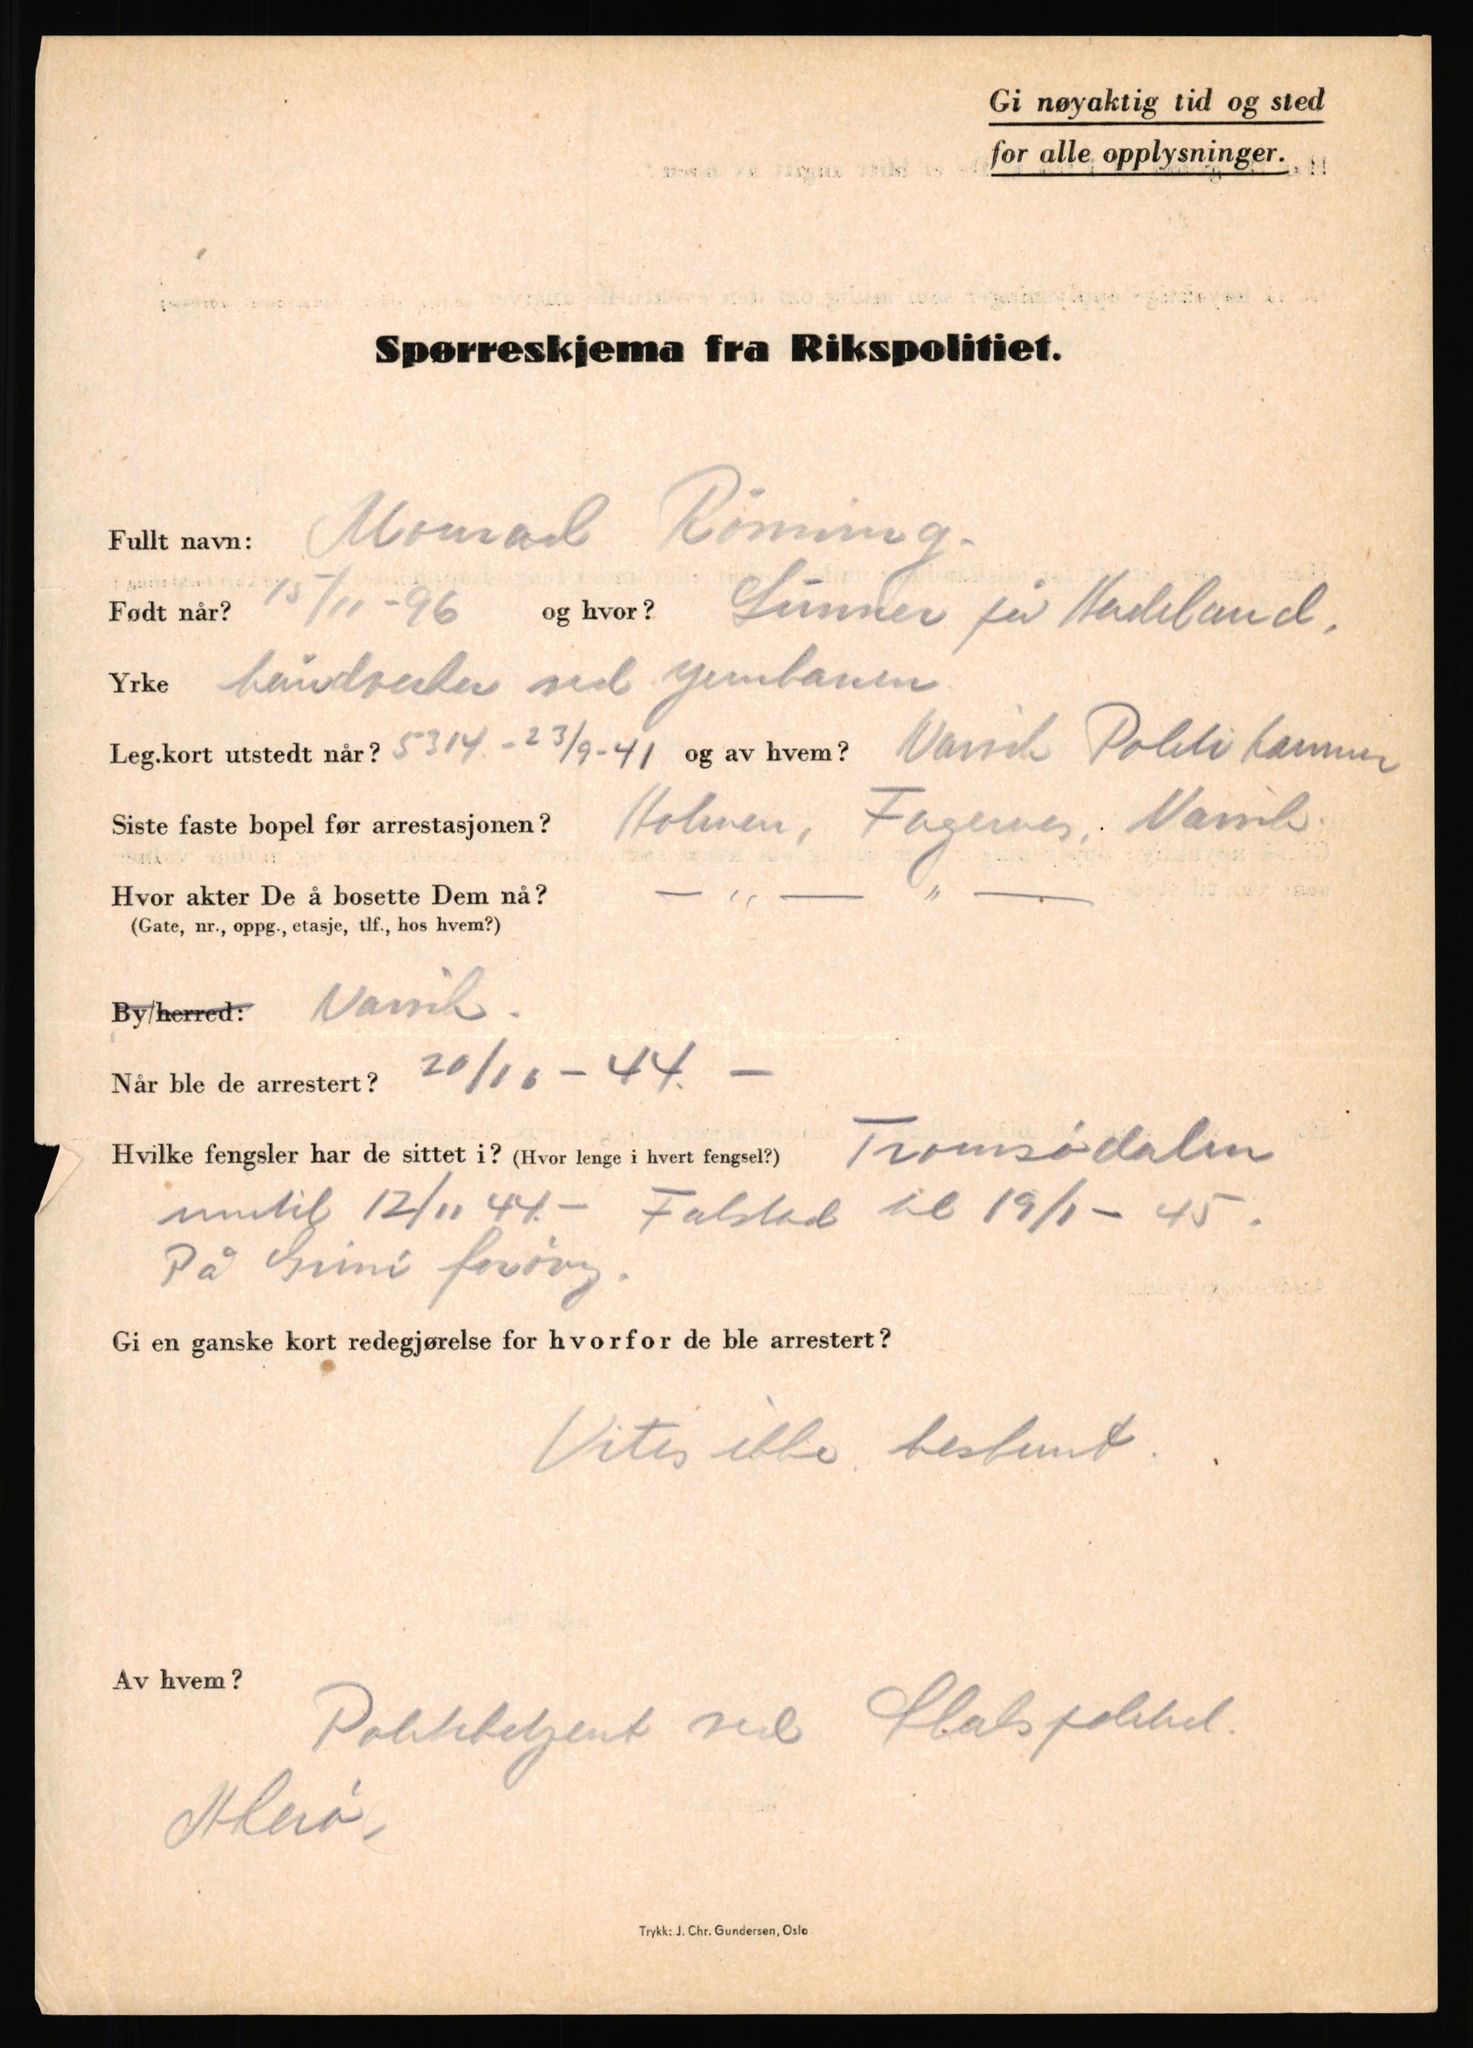 Gi nøyaktig tid og sted
for alle opplysninger.
Spørreskjema fra Rikspolitiet.
Fullt navn: Monrad Rönning.
Født når? 15/11-96 og hvor? Lunner på Hadeland.
Yrke håndverker ved jernbanen
Leg.kort utstedt når? 5314.-23/9-41 og av hvem? Narvik Politikammer
Siste faste bopel før arrestasjonen? Holmen, Fagernes, Narvik.
Hvor akter De å bosette Dem nå? — „ — „ —
(Gate, nr., oppg., etasje, tlf., hos hvem?)
By/herred: Narvik.
Når ble de arrestert? 20/10-44.-
Hvilke fengsler har de sittet i? (Hvor lenge i hvert fengsel?) Tromsödalen
inntil 12/11 44.- Falstad til 19/1-45.
På Grini forövrig.
Gi en ganske kort redegjørelse for hvorfor de ble arrestert?
Vites ikke bestemt.
Av hvem?
Politibetjent ved Statspolitiet.
Trykk: J. Chr. Gundersen, Oslo